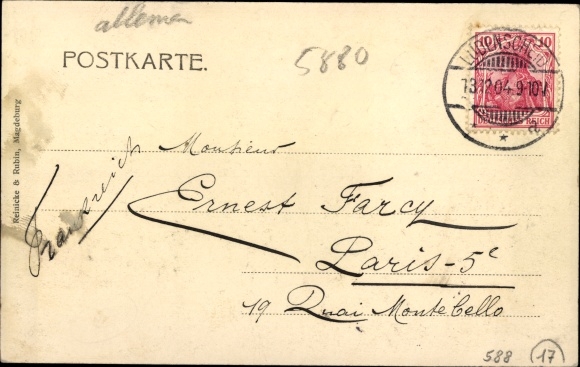 allemen
POSTKARTE.
5880
10
LÜDENSCHEID
13.12.04.9-10V.
REICH
Reinicke & Rubin, Magdeburg
Frankreich
Monsieur
Ernest Farcy
Paris-5e
19 Quai Montebello
588 17